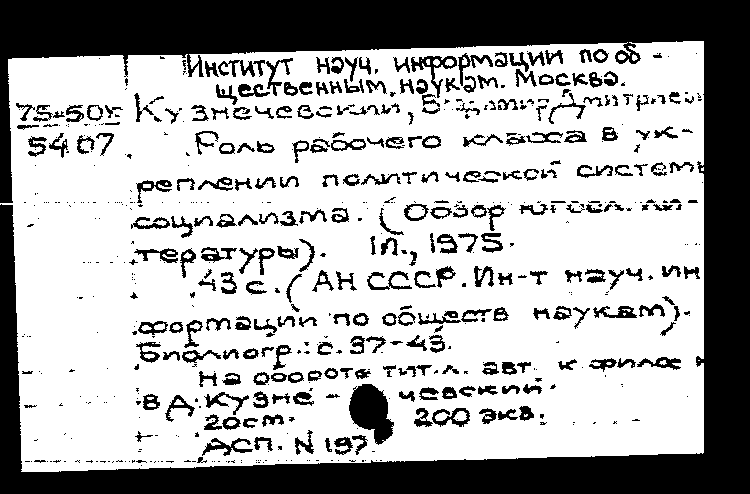 Институт науч. информации по об-
щественным наукам. Москва.
75-50к Кузнечевский, Владимир Дмитриеви
5407 Роль рабочего класса в ук-
реплении политической системы
социализма. (Обзор югосл. ли-
тературы). М., 1975.
43 с. (АН СССР. Ин-т науч. ин
формации по обществ наукам).
Библиогр.: с. 37-43.
На обороте тит.л. авт. к филос н
В Д Кузне- чевский.
20см. 200 экз.
ДСП. N 197